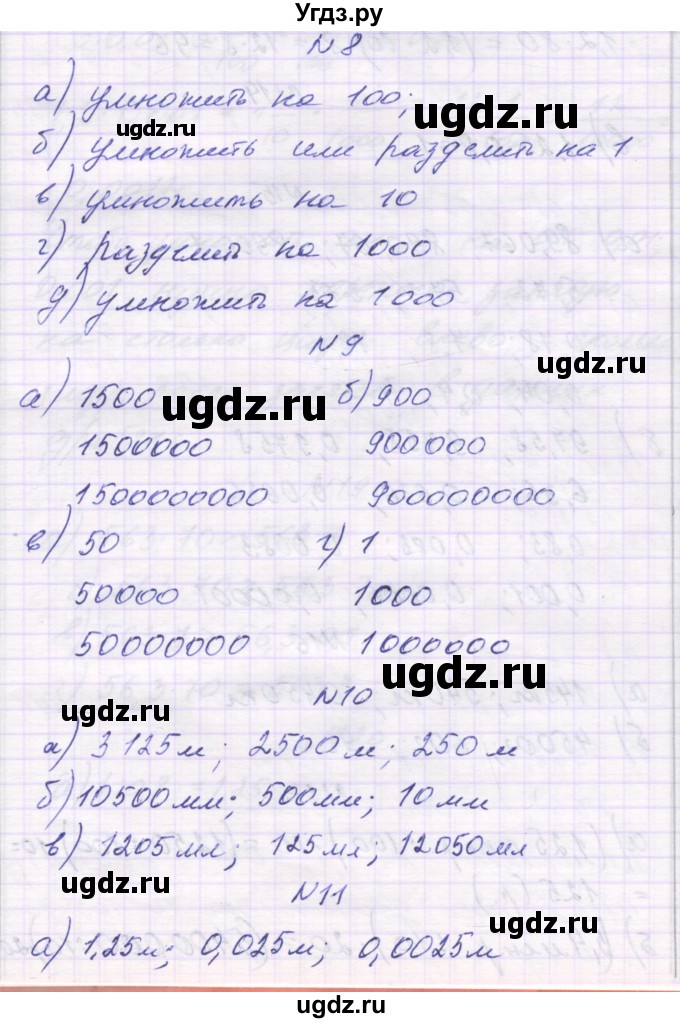 Угдз.ру
N 8
а) умножить на 100;
ugdz.ru ugdz.ru
б) умножить или разделить на 1
в) умножить на 10
г) разделить на 1000
д) умножить на 1000
N 9
ugdz.ru
а) 1500 ugdz.ru б) 900
1500000 900000
1500000000 900000000
ugdz.ru
в) 50 г) 1
50000 1000
50000000 1000000
ugdz.ru
N10
ugdz.ru
а) 3125м; 2500м; 250м
б) 10500мм; 500мм; 10мм
ugdz.ru
в) 1205мл; 125мл; 12050мл
N11
ugdz.ru
а) 1,25м; 0,025м; 0,0025м
ugdz.ru